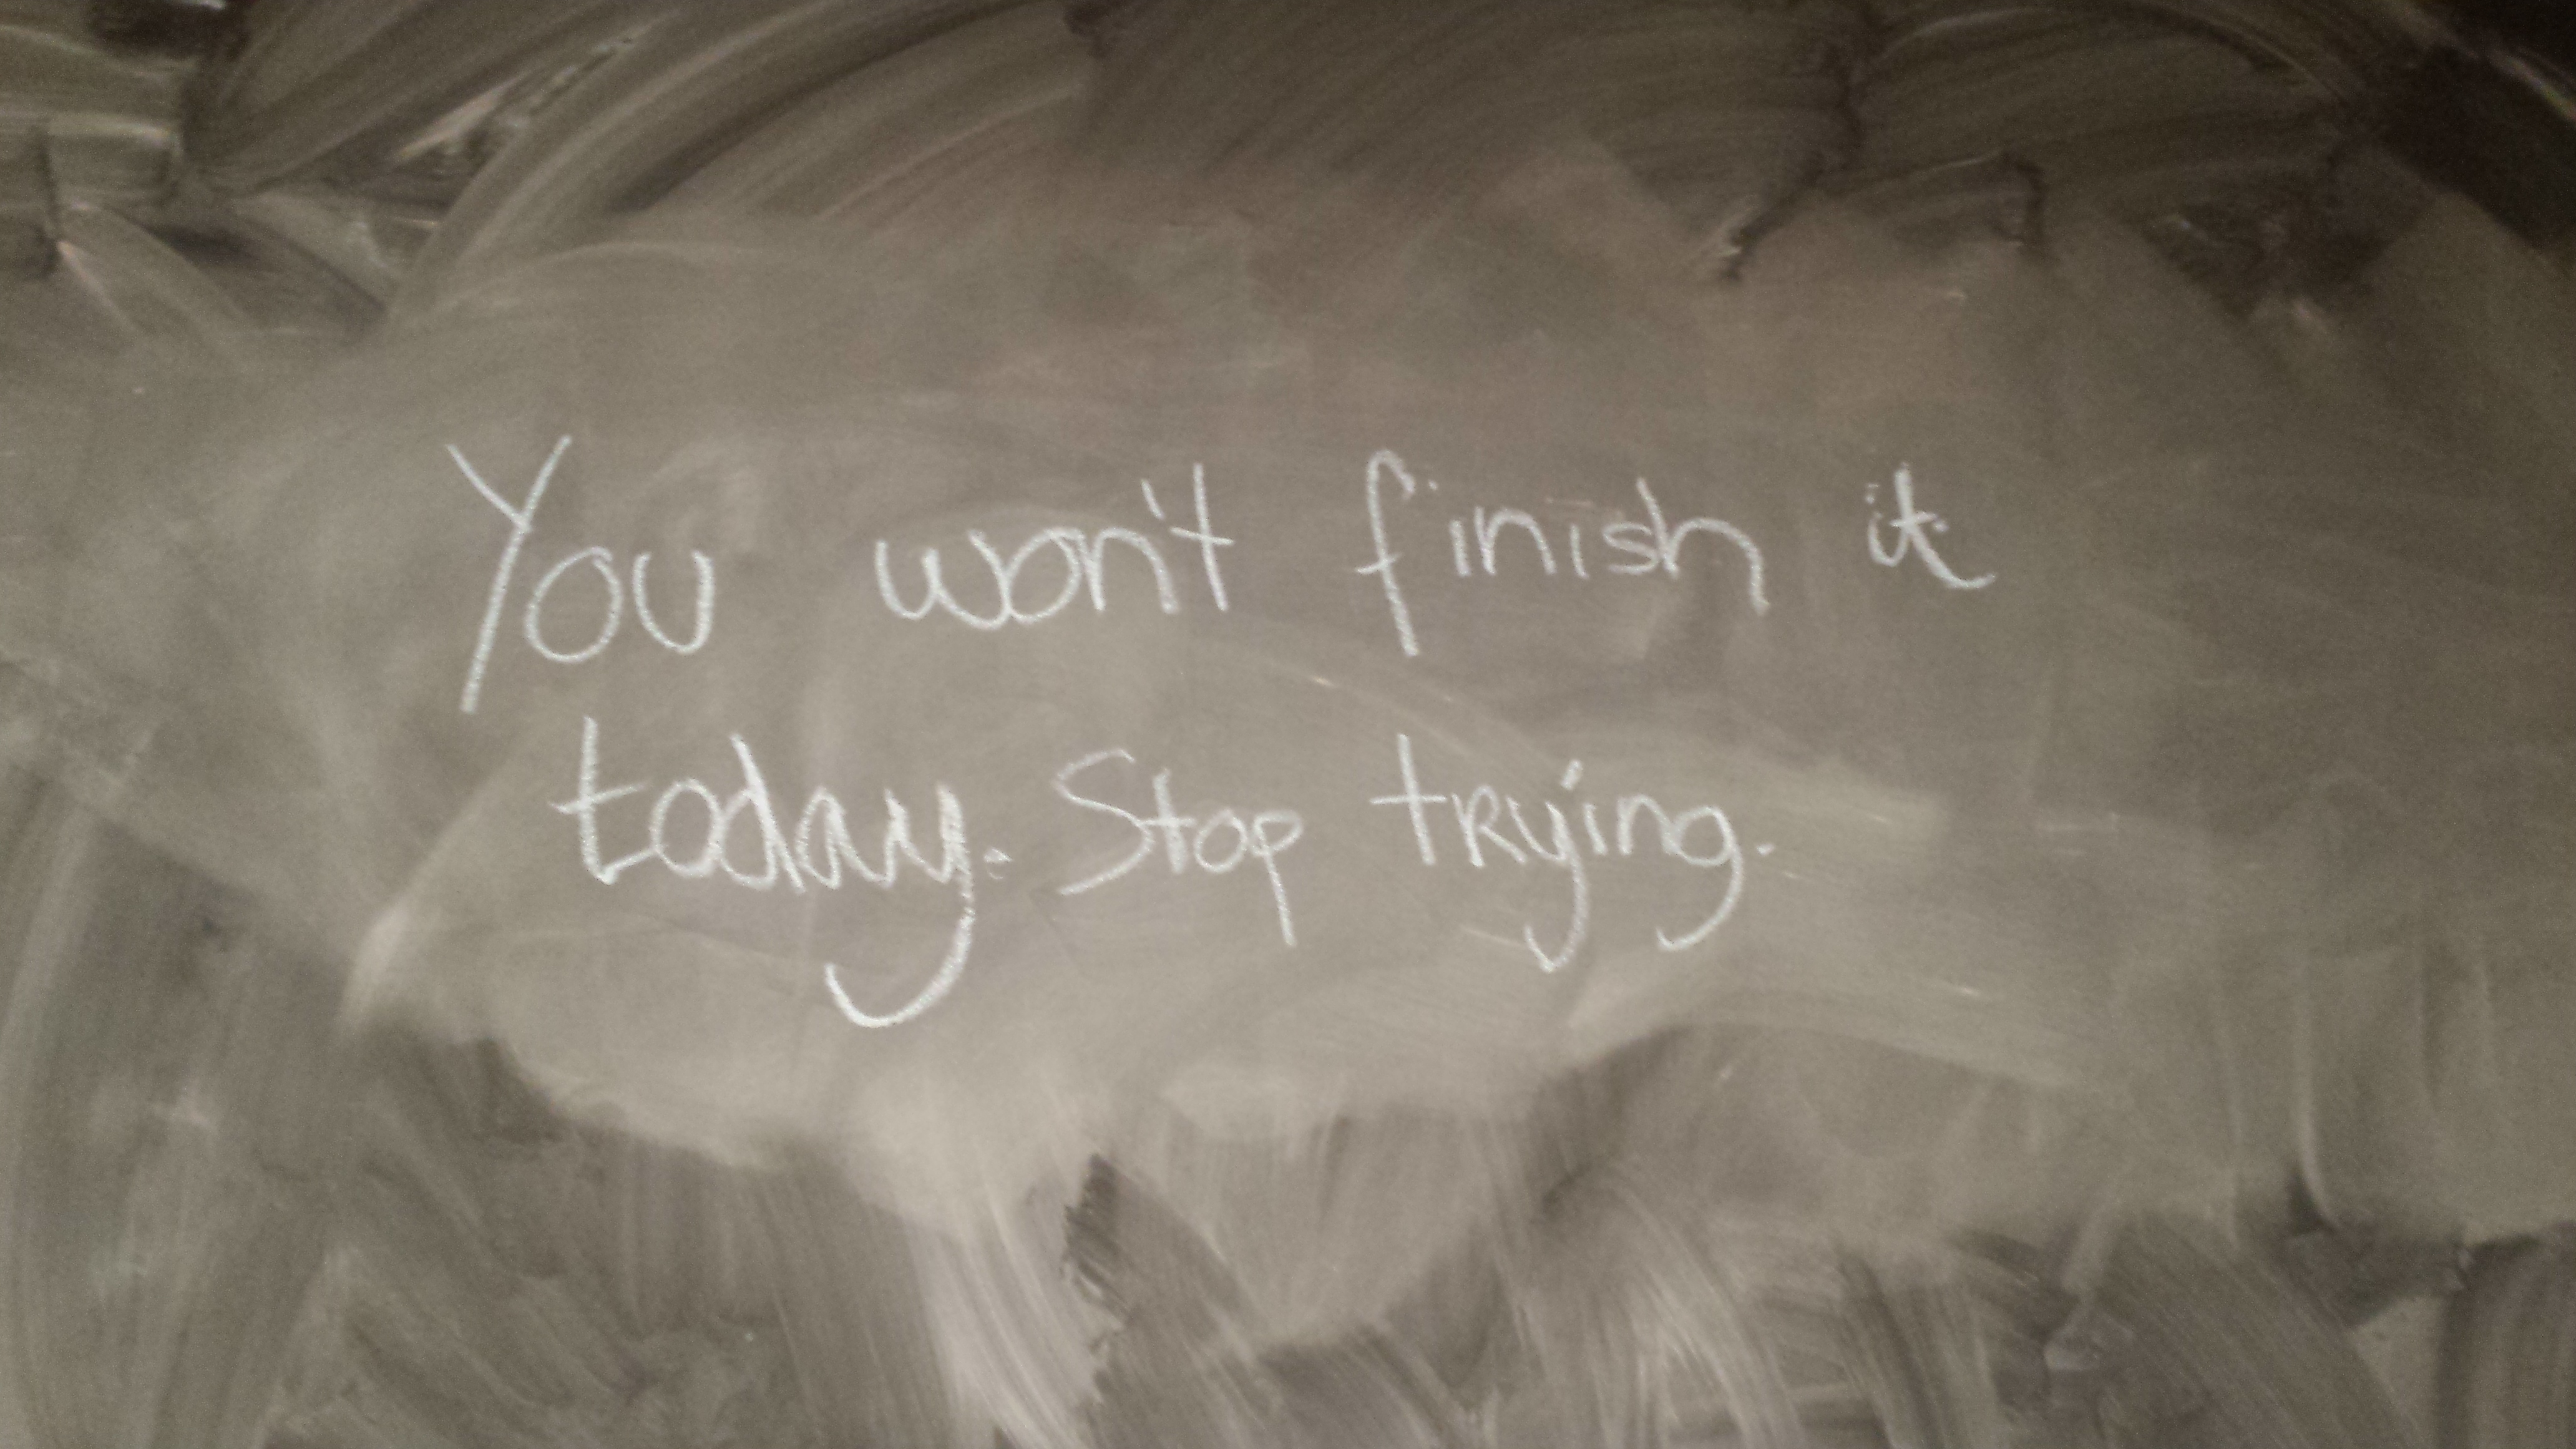 You won't finish it
today. Stop trying.